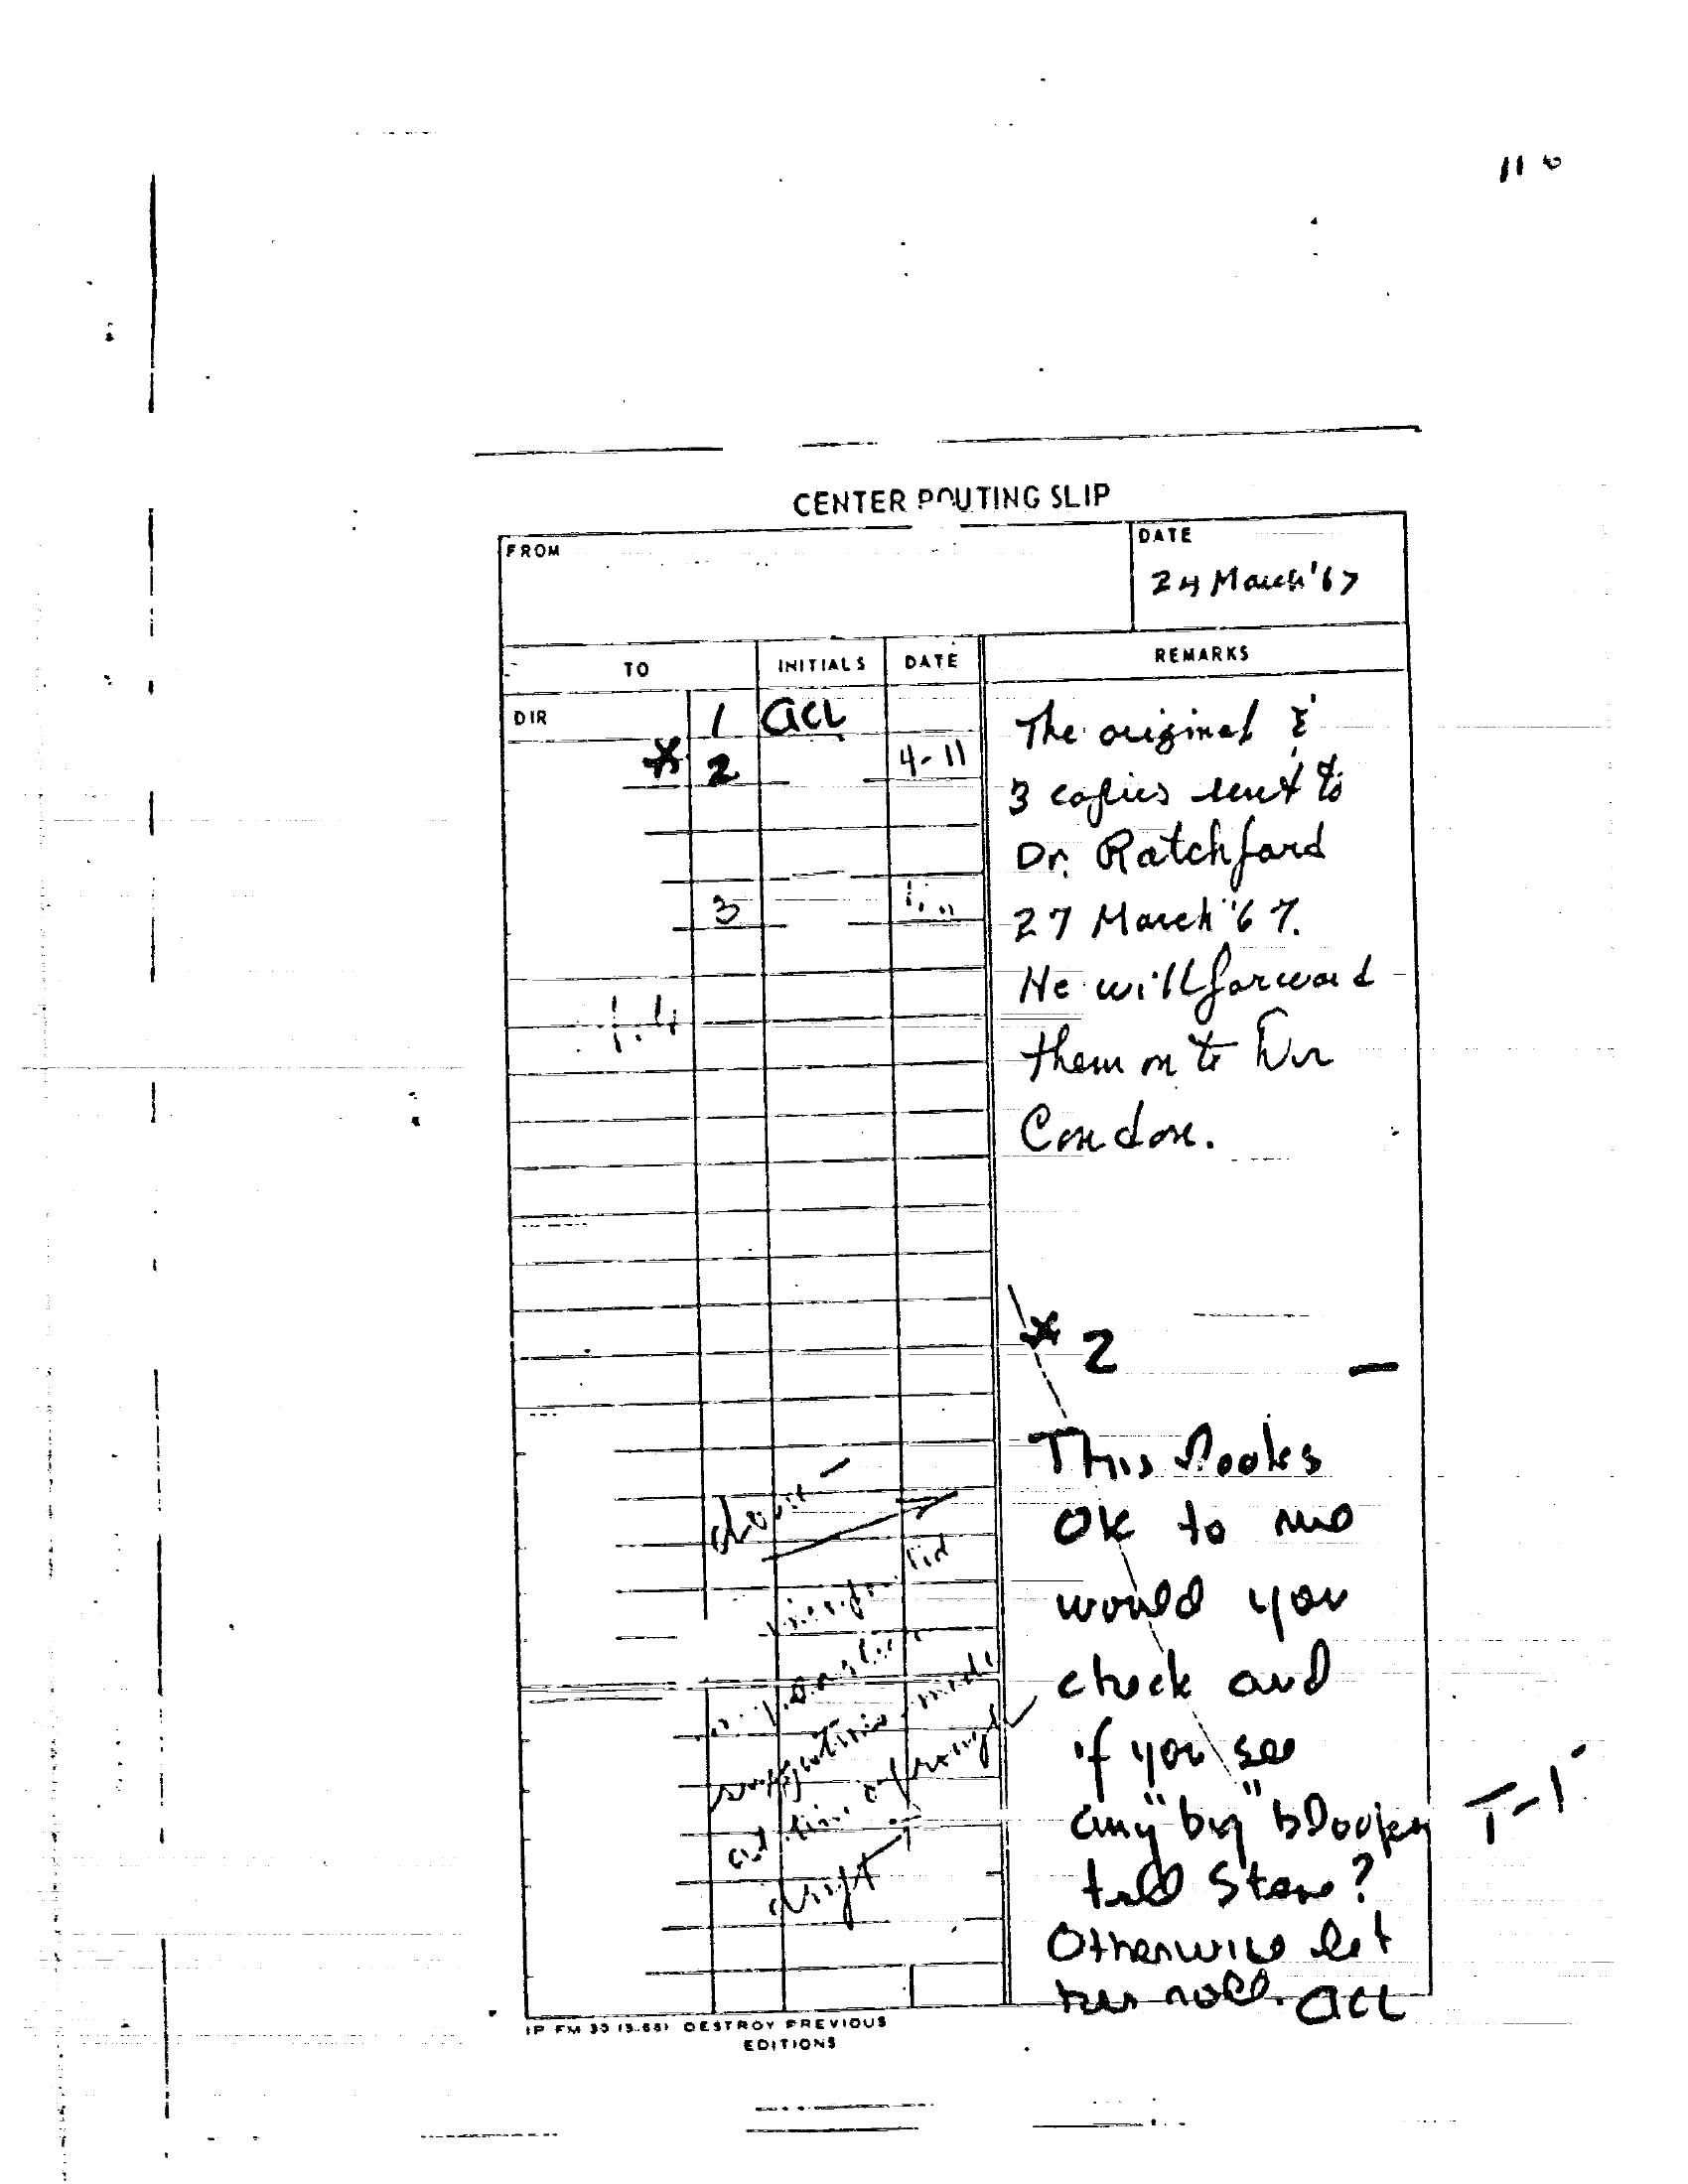 CENTER ROUTING SLIP
FROM
DATE
24 March '67
TO INITIALS DATE REMARKS
DIR 1 acl
* 2 4-11
3
The original &
3 copies sent to
Dr. Ratchford
27 March '67.
He will forward
them on to Dr
Condon.
* 2
This looks
ok to me
would you
check and
if you see
any "big" blooper
tell Steve?
Otherwise let
her roll. acl
done
suggestions made
draft
T-1
IP FM 30 (5-66) DESTROY PREVIOUS
EDITIONS